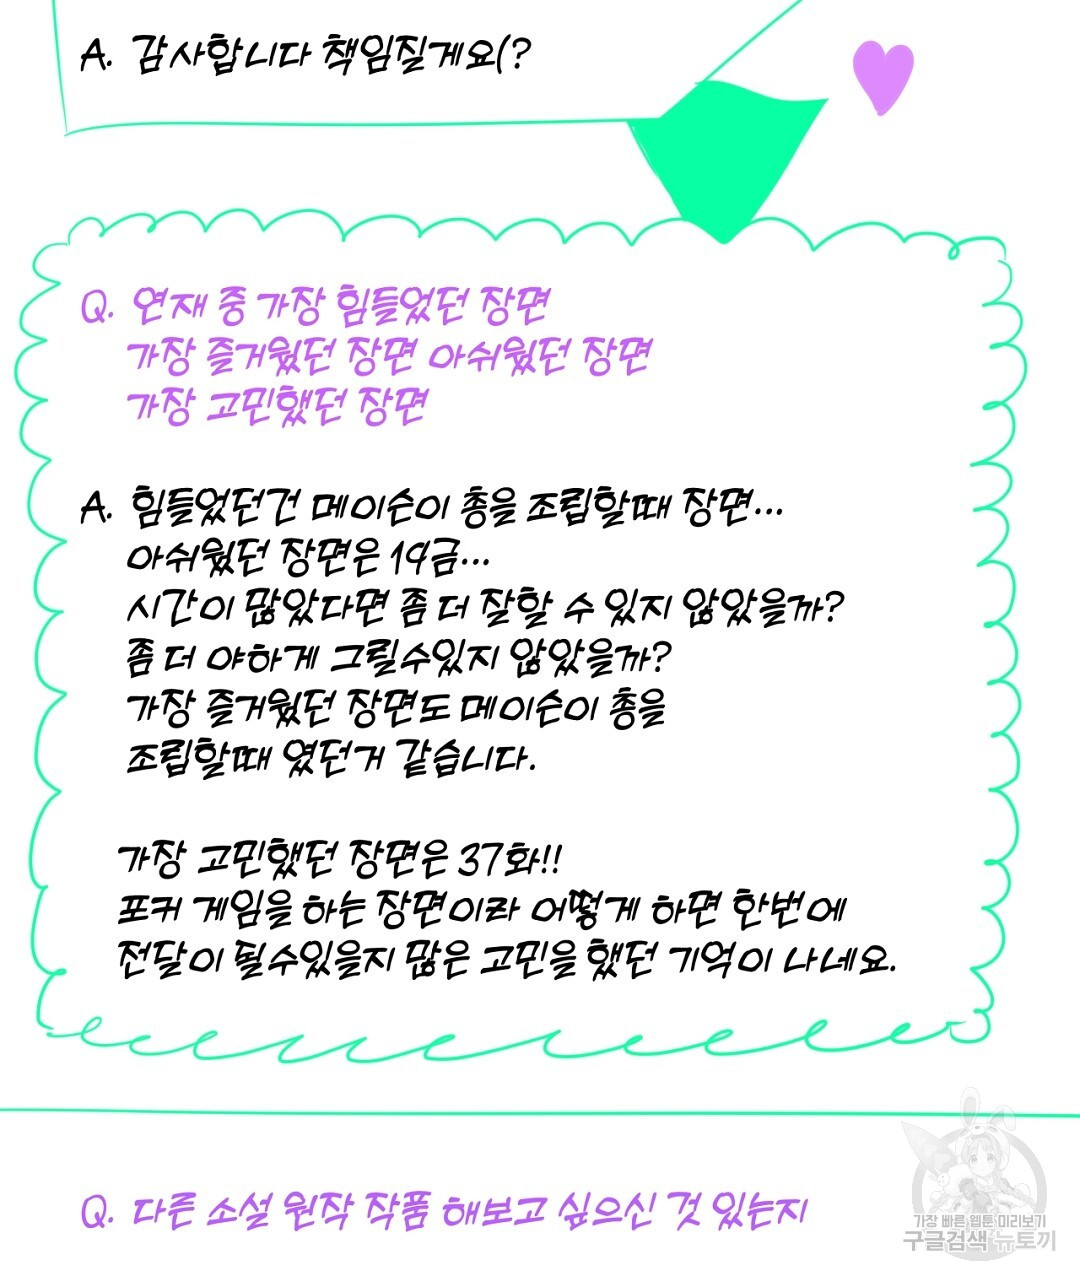 A. 감사합니다 책임질게요(?
Q. 연재 중 가장 힘들었던 장면
가장 즐거웠던 장면 아쉬웠던 장면
가장 고민했던 장면
A. 힘들었던건 메이슨이 총을 조립할때 장면...
아쉬웠던 장면은 19금...
시간이 많았다면 좀 더 잘할 수 있지 않았을까?
좀 더 야하게 그릴수있지 않았을까?
가장 즐거웠던 장면도 메이슨이 총을
조립할때 였던거 같습니다.
가장 고민했던 장면은 37화!!
포커 게임을 하는 장면이라 어떻게 하면 한번에
전달이 될수있을지 많은 고민을 했던 기억이 나네요.
Q. 다른 소설 원작 작품 해보고 싶으신 것 있는지
가장 빠른 웹툰 미리보기
구글검색 뉴토끼